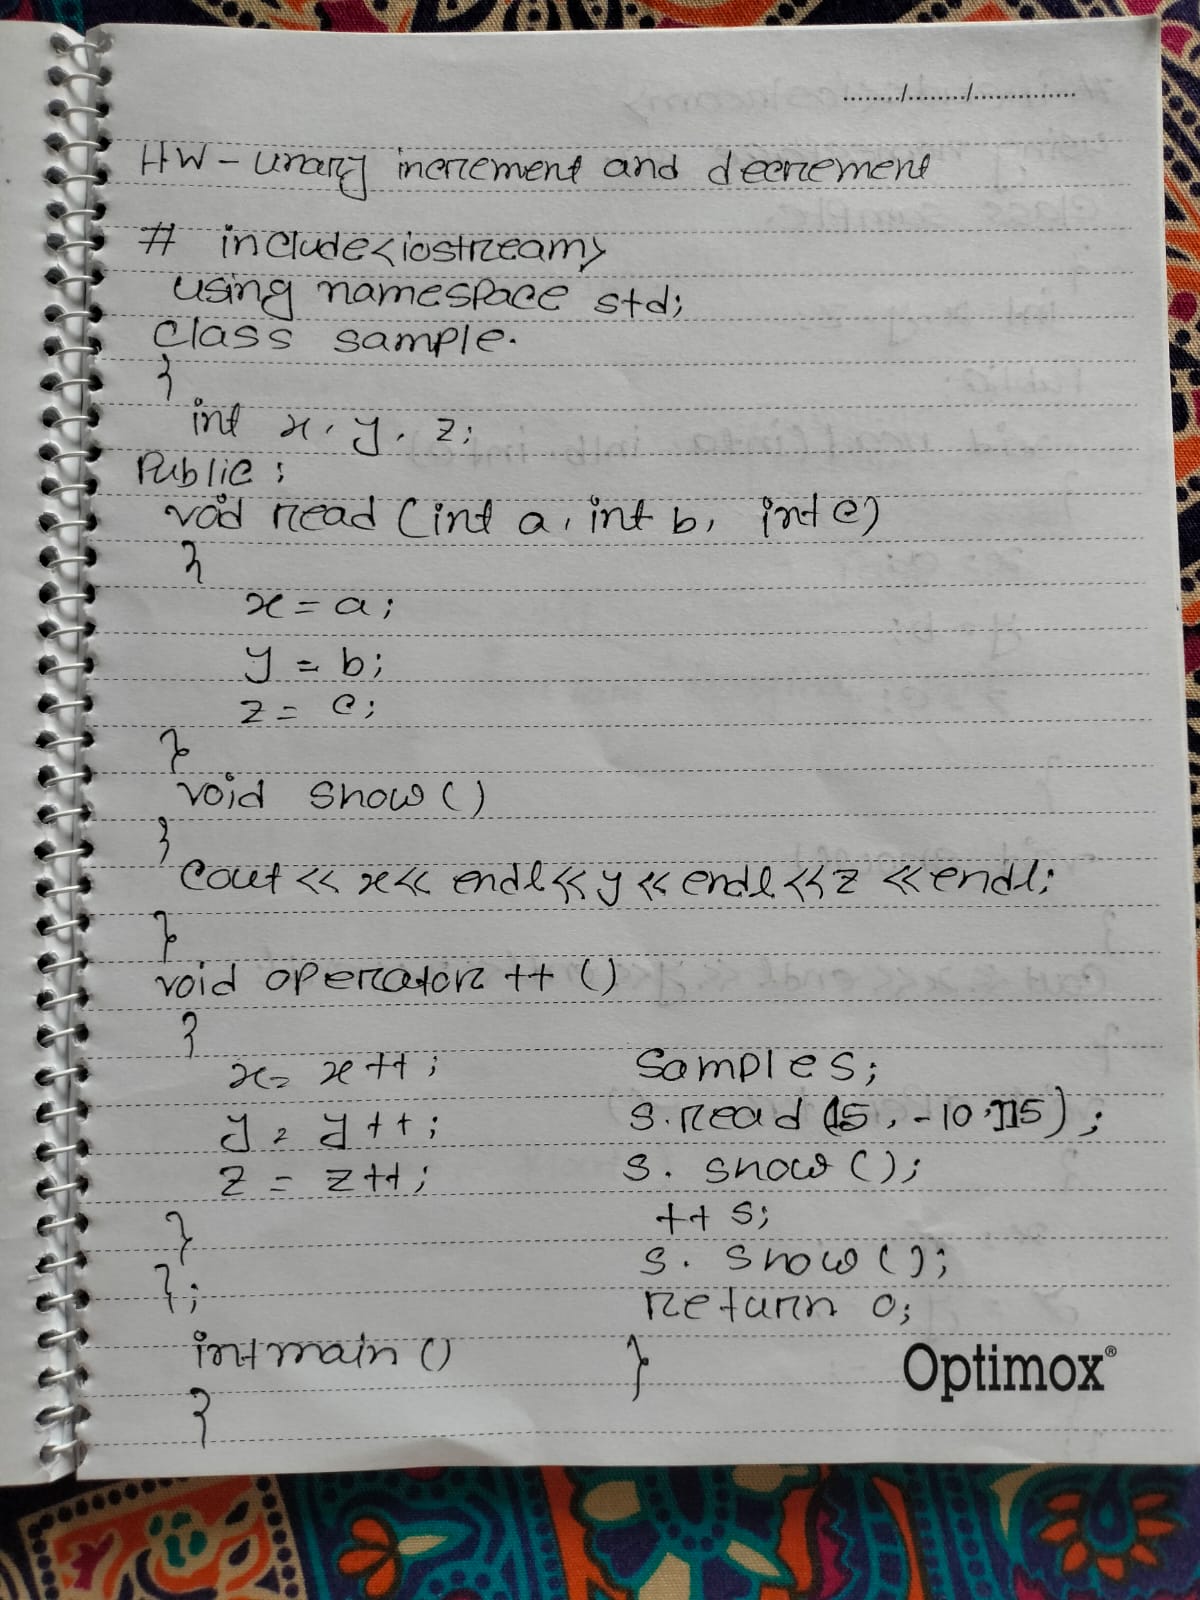 ......../......../..............
HW - unary increment and decrement
# include<iostream>
using namespace std;
class sample.
{
int x, y, z;
Public :
void read (int a, int b, int c)
{
x = a;
y = b;
z = c;
}
void show ()
{
Cout << x << endl << y << endl << z << endl;
}
void operator ++ ()
{
x = x ++ ;
y = y ++ ;
z = z ++ ;
}
};
int main ()
{
Sample s;
s.read (15, -10, 115) ;
s. show ();
++ s;
s. show ();
return 0;
}
Optimox®